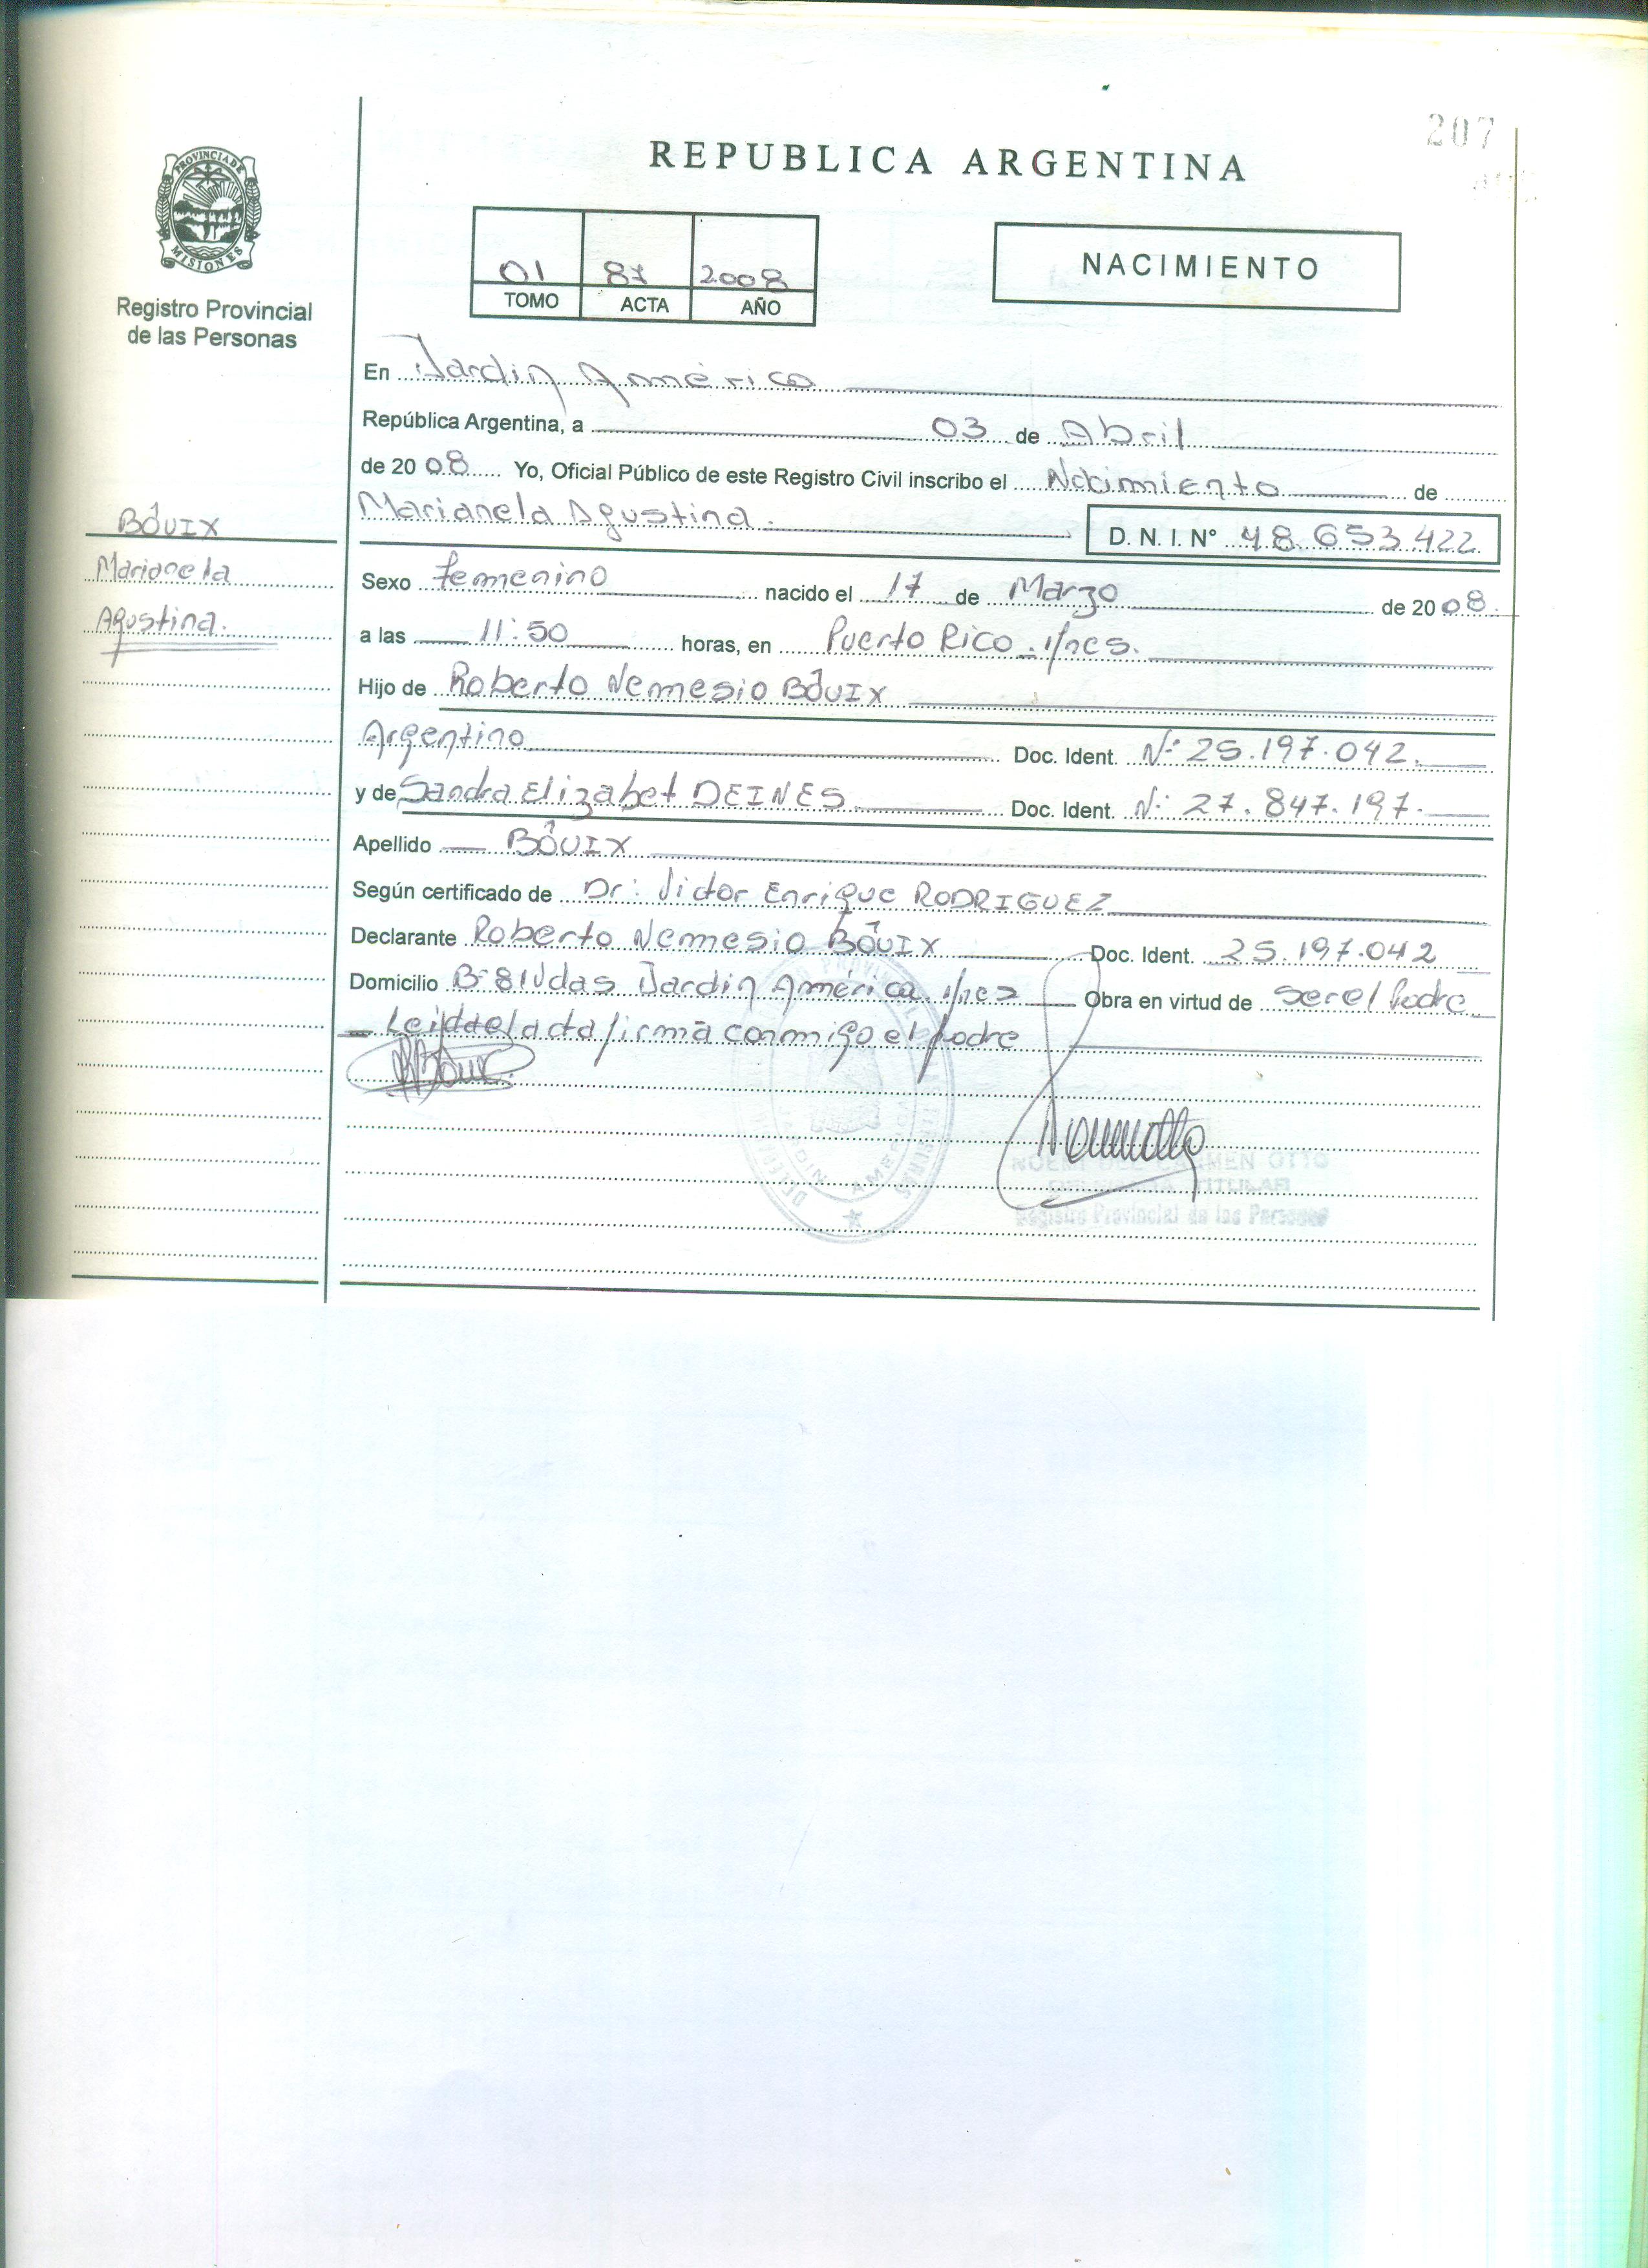 207
REPUBLICA ARGENTINA
PROVINCIA DE
MISIONES
Registro Provincial
de las Personas
01 87 2008
TOMO ACTA AÑO
NACIMIENTO
En Jardin América
República Argentina, a 03 de Abril
de 2008 Yo, Oficial Público de este Registro Civil inscribo el Nacimiento de
Marianela Agustina. D. N. I. N° 48.653.422
BÔUIX
Marianela
Agustina.
Sexo femenino nacido el 17 de Marzo de 2008.
a las 11:50 horas, en Puerto Rico. Mnes.
Hijo de Roberto Nemesio BÔUIX
Argentino Doc. Ident. Nº 25.197.042.
y de Sandra Elizabet DEINES Doc. Ident. Nº 27.847.197.
Apellido BÔUIX
Según certificado de Dr: Victor Enrique RODRIGUEZ
Declarante Roberto Nemesio BÔUIX Doc. Ident. 25.197.042
Domicilio Bº 8 Vdas Jardin América. Mnes Obra en virtud de ser el padre
Leida el acta firma conmigo el padre
NOEMI DEL CARMEN OTTO
TITULAR
Registro Provincial de las Personas